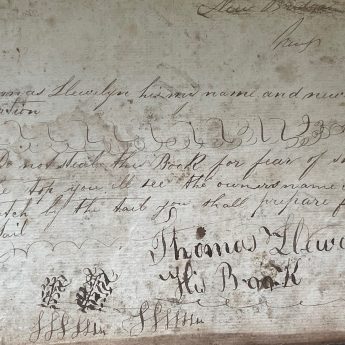 New
omas Llewelyn his name and new
ation
Do not steal this Book for fear of s
e top you,ll see the owners name
tch by the tail you shall prepare f
Jail
Thomas Llew
His Book